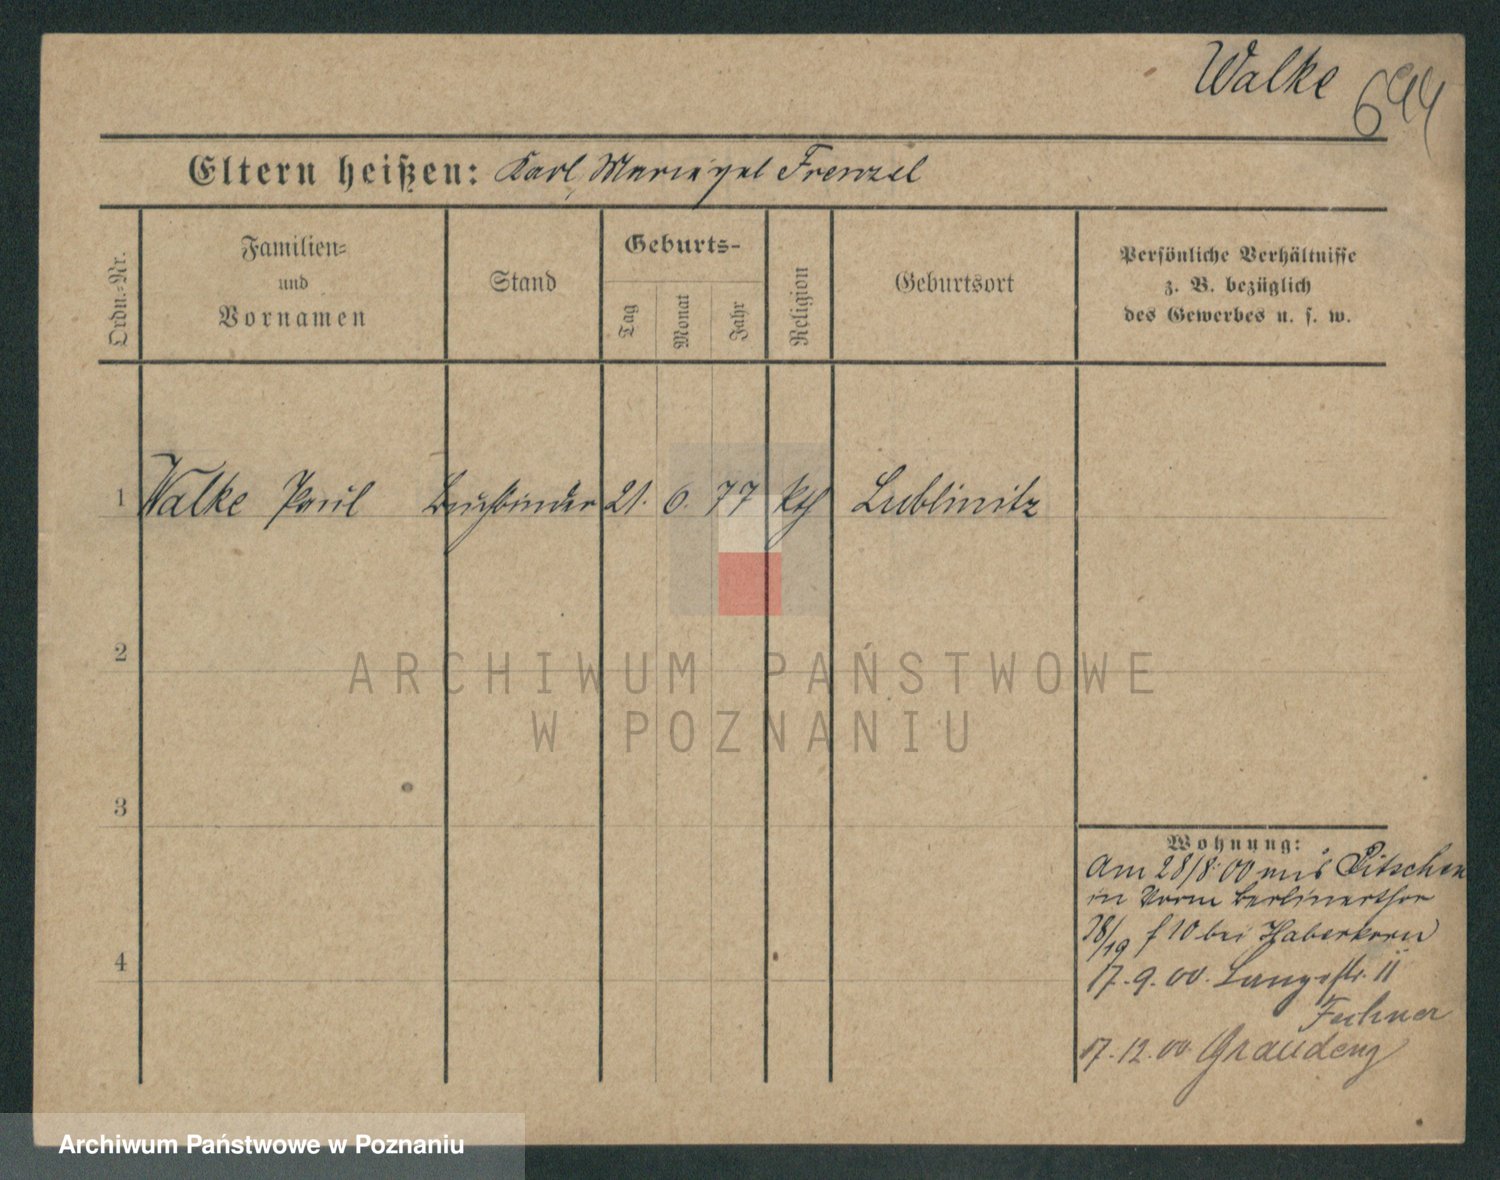 Walke
Eltern heißen: Karl, Marie gel Frenzel
Ordn.-Nr.
Familien-
und
Vornamen
Stand
Geburts-
Tag
Monat
Jahr
Religion
Geburtsort
Persönliche Verhältnisse
z. B. bezüglich
des Gewerbes u. s. w.
1 Walke Paul Buchbinder 21. 6. 77 kth Lublinitz
2
ARCHIWUM PAŃSTWOWE
W POZNANIU
3
Wohnung:
Am 28/8 00 aus Pitschen
in Berlinerthor
18/19 f 10 bei Haberkorn
17. 9. 00. Langestr. 11
Fechner
4
17. 12. 00 Graudenz
Archiwum Państwowe w Poznaniu